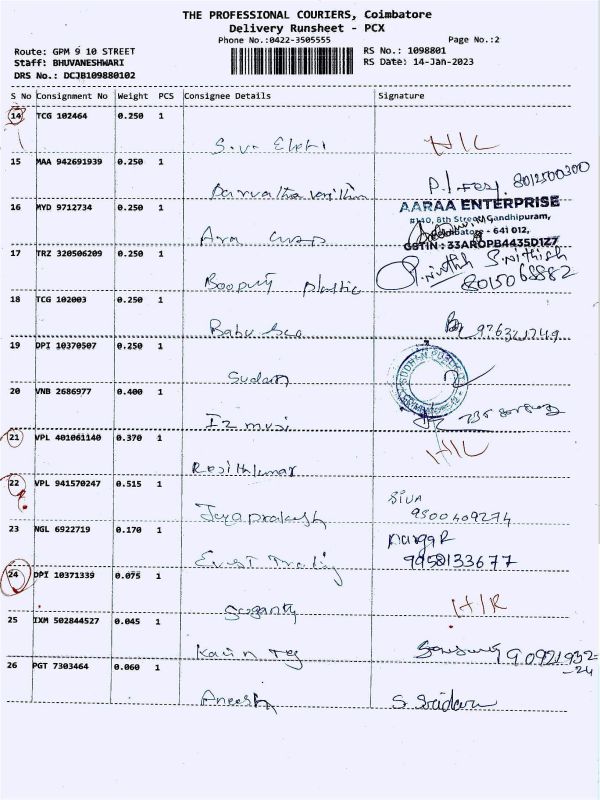 THE PROFESSIONAL COURIERS, Coimbatore
Delivery Runsheet - PCX
Phone No.:0422-3505555
Page No.:2
Route: GPM 9 10 STREET
Staff: BHUVANESHWARI
DRS No.: DCJB109880102
RS No.: 1098801
RS Date: 14-Jan-2023
S No Consignment No Weight PCS Consignee Details Signature
14 TCG 102464 0.250 1
H/L
15 MAA 942691939 0.250 1
8012500300
16 MYD 9712734 0.250 1
AARAA ENTERPRISE
#140, 8th Street, Gandhipuram,
641 012,
GSTIN : 33AROPB4435D1Z7
17 TRZ 320506209 0.250 1
S.Nithish
Boopathy Plastic 8015068882
18 TCG 102003 0.250 1
Babu
19 DPI 10370507 0.250 1
SUDHAN PUBLICIT
Sudan
20 VNB 2686977 0.400 1
21 VPL 401061140 0.370 1
H/L
22 VPL 941570247 0.515 1
SIVA
Jeyaprakash 9500409274
23 NGL 6922719 0.170 1
Everest Trading 9958133677
24 DPI 10371339 0.075 1
H/R
Suganthy
25 IXM 502844527 0.045 1
26 PGT 7303464 0.060 1
Aneesh